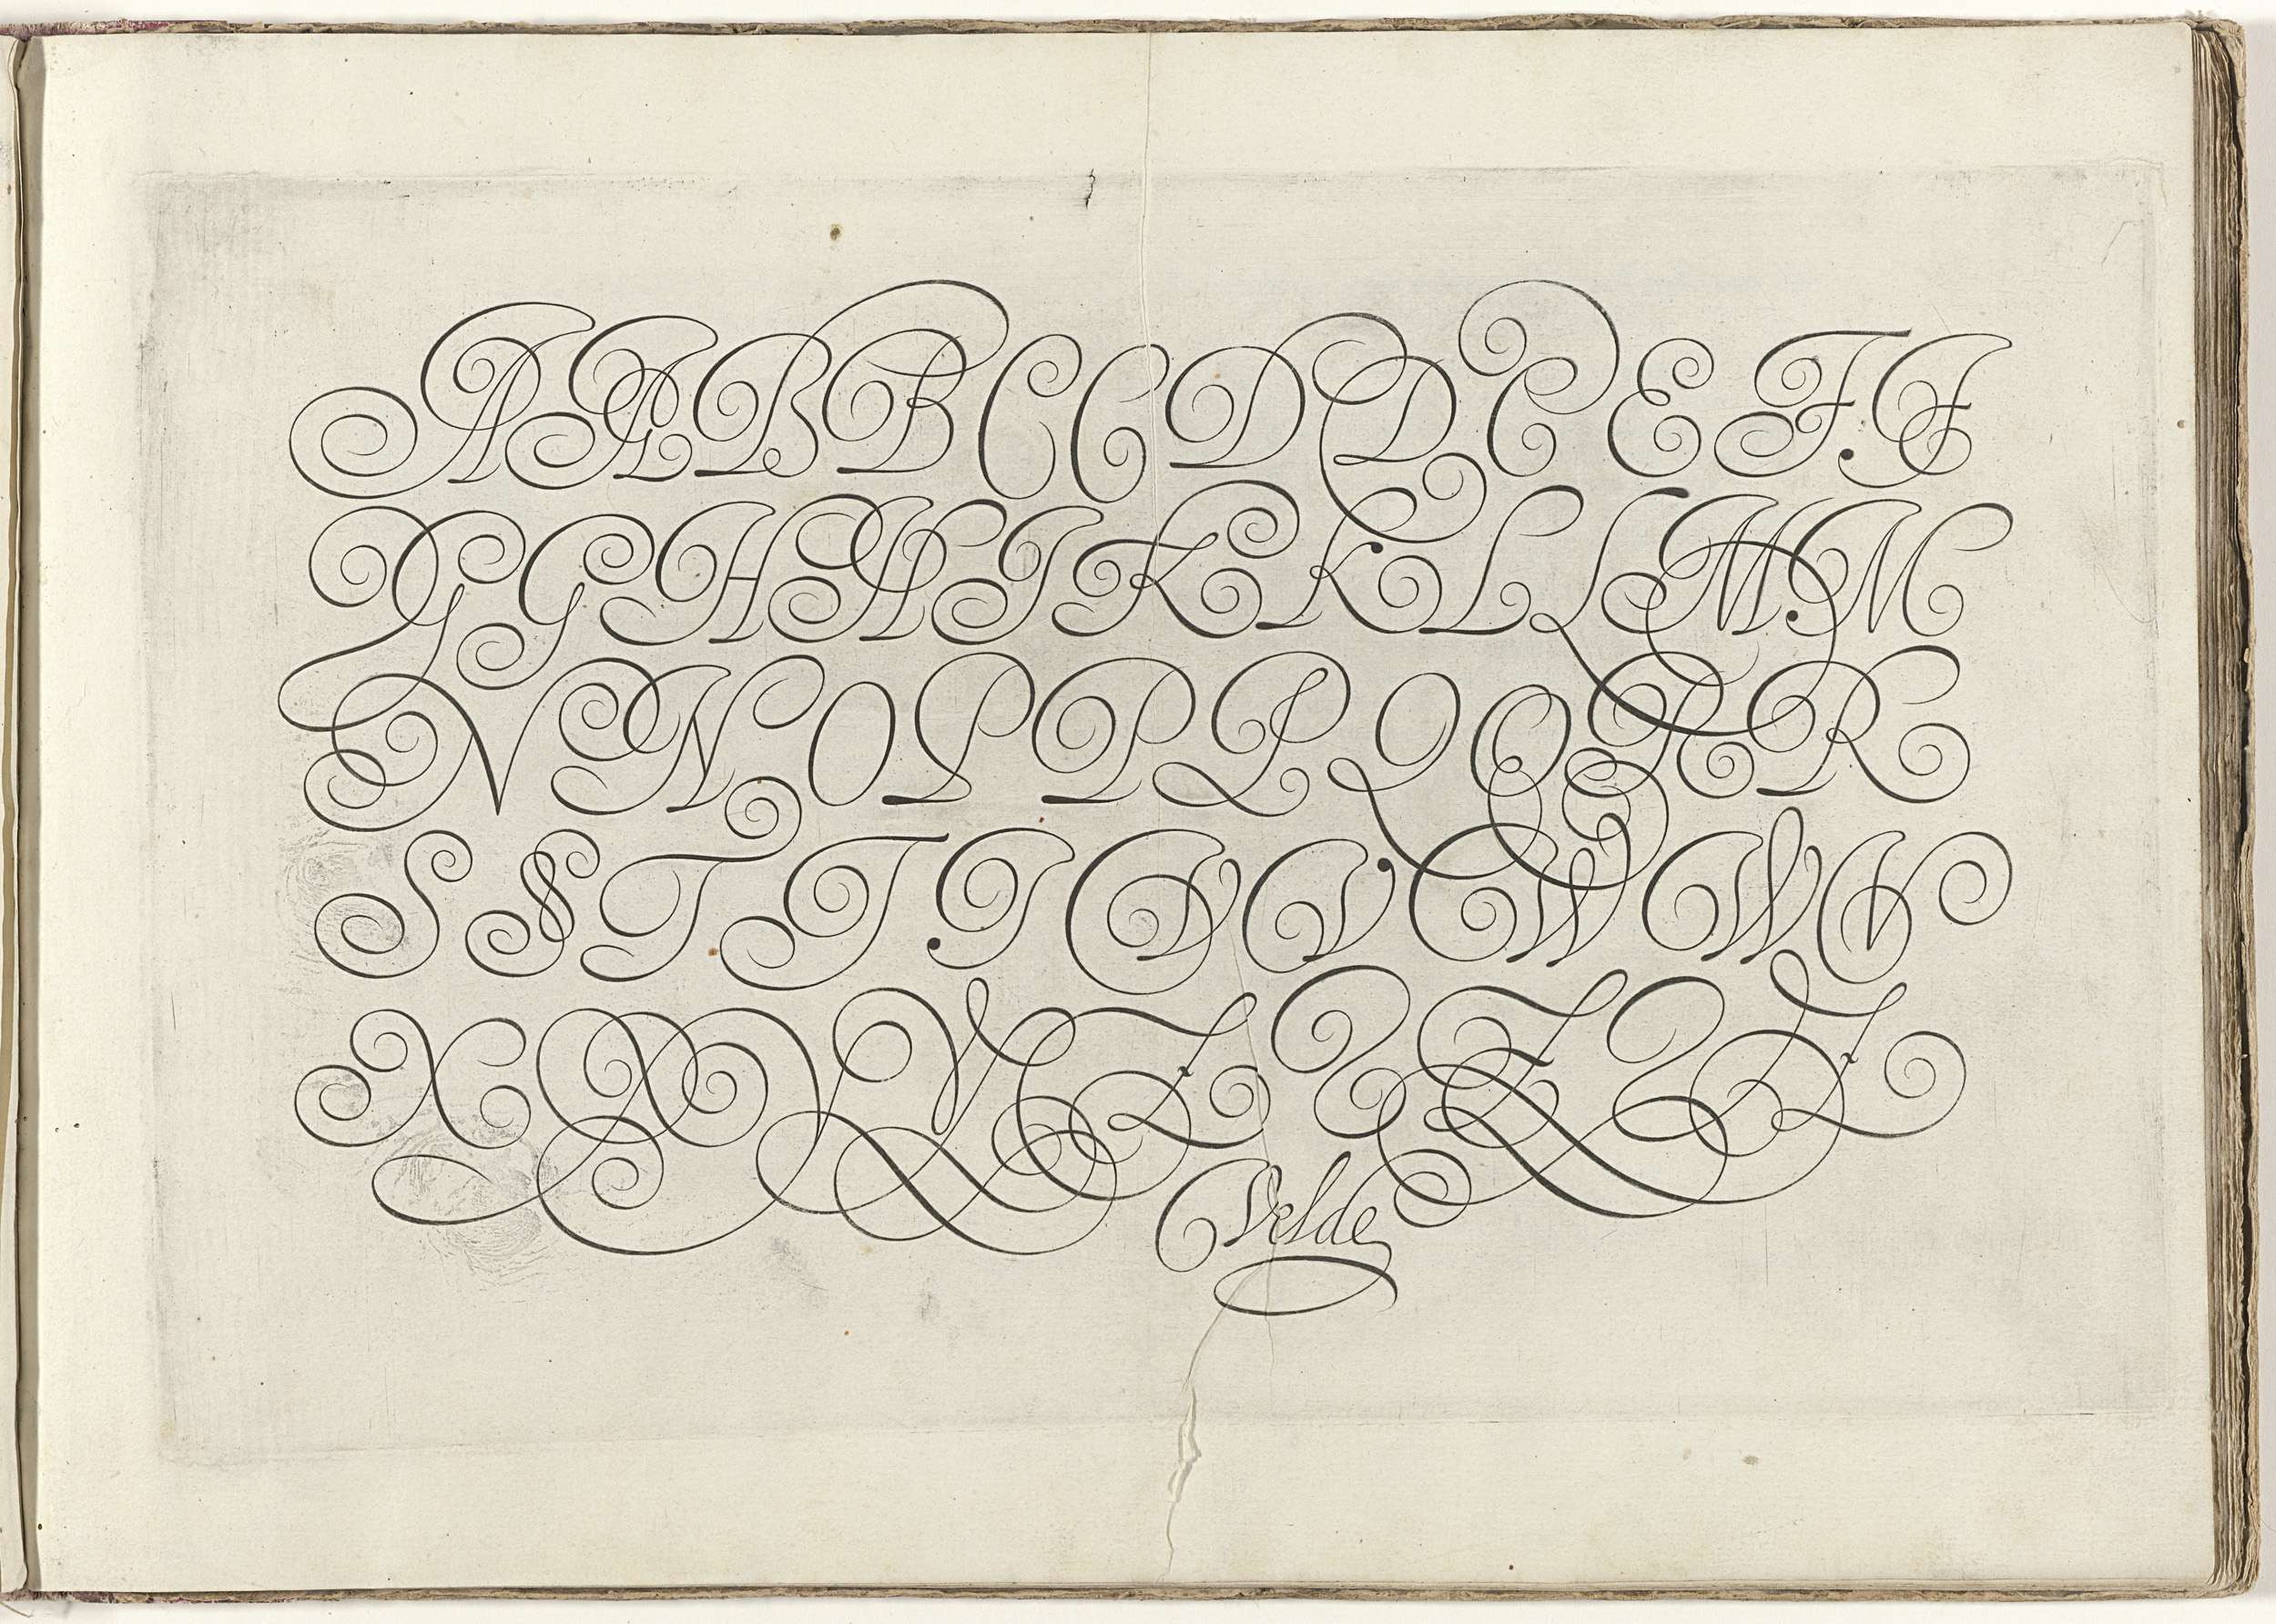 A A B B C C D D E E F. F
G G H H I K K L L M. M
N N O P P P Q Q R R
S S T T T V V W W V
X X Y Y Z Z Z Z Z
Velde